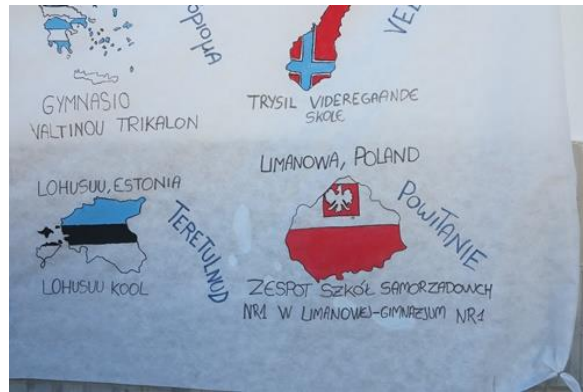 GYMNASIO
VALTINOU TRIKALON
TRYSIL VIDEREGAANDE
SKOLE
LOHUSUU, ESTONIA
TERETULNUD
LOHUSUU KOOL
LIMANOWA, POLAND
POWITANIE
ZESPOT SZKÓŁ SAMORZADOWCH
NR1 W LIMANOWEJ-GIMNAZJUM NR1